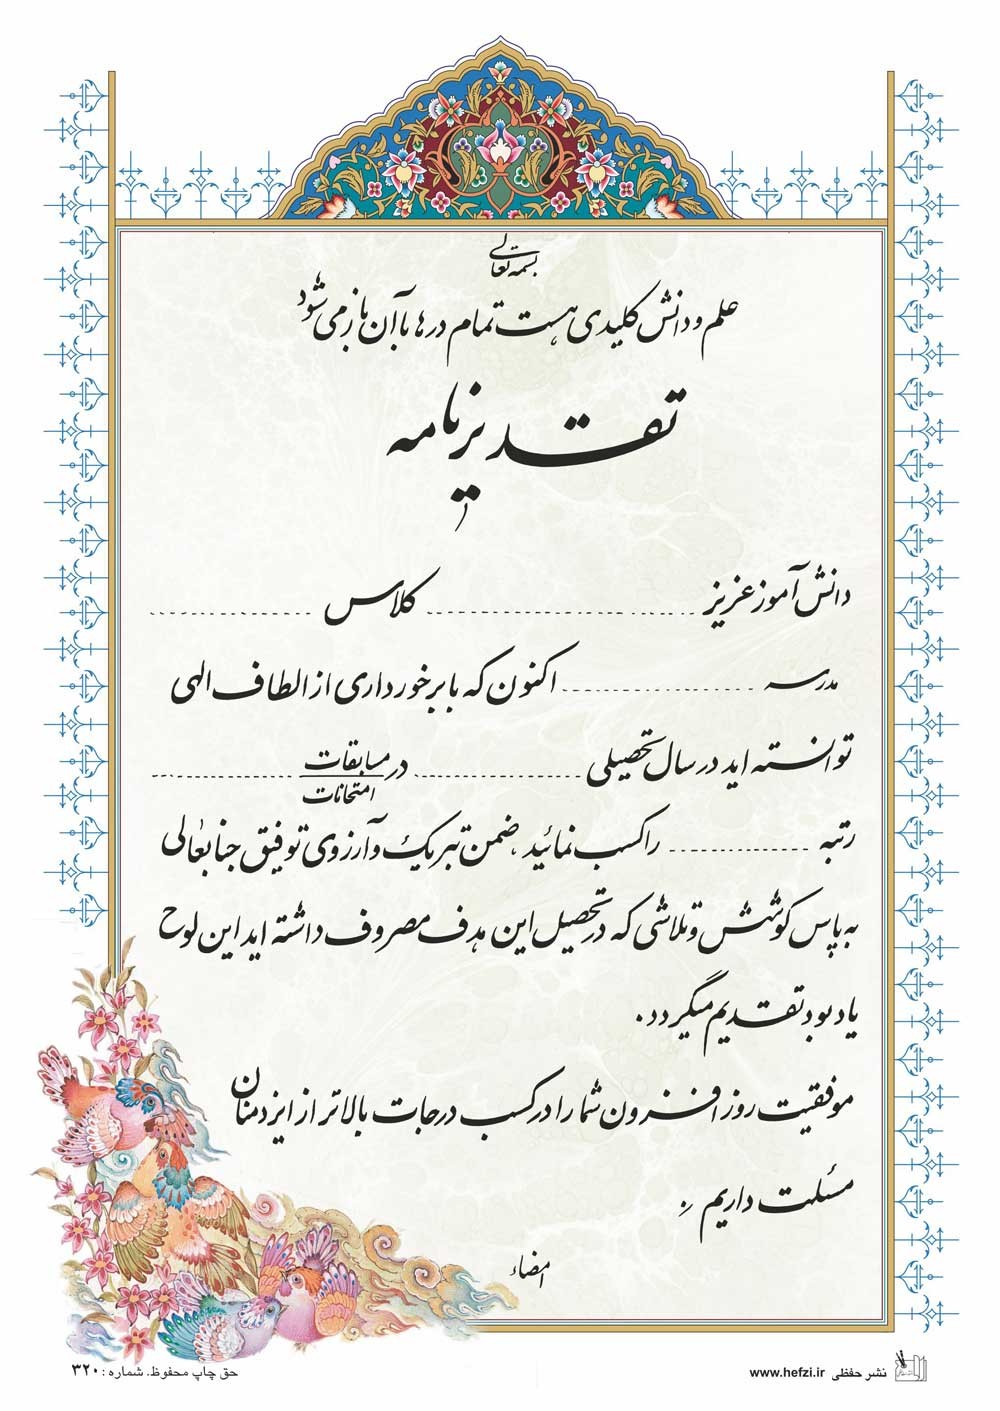 بسمه تعالی
علم و دانش کلیدی هست تمام درها با آن باز می شود
تقدیرنامه
دانش آموز عزیز ........................ کلاس ................
مدرسه .................... اکنون که با برخورداری از الطاف الهی
توانسته اید در سال تحصیلی ................ در مسابقات ................
امتحانات
رتبه ................ را کسب نمائید، ضمن تبریک و آرزوی توفیق جنابعالی
به پاس کوشش و تلاشی که در تحصیل این هدف مصروف داشته اید این لوح
یادبود تقدیم میگردد.
موفقیت روزافزون شما را در کسب درجات بالاتر از ایزد منان
مسئلت داریم.
امضاء
نشر حفظی www.hefzi.ir
حق چاپ محفوظ. شماره: ۳۲۰